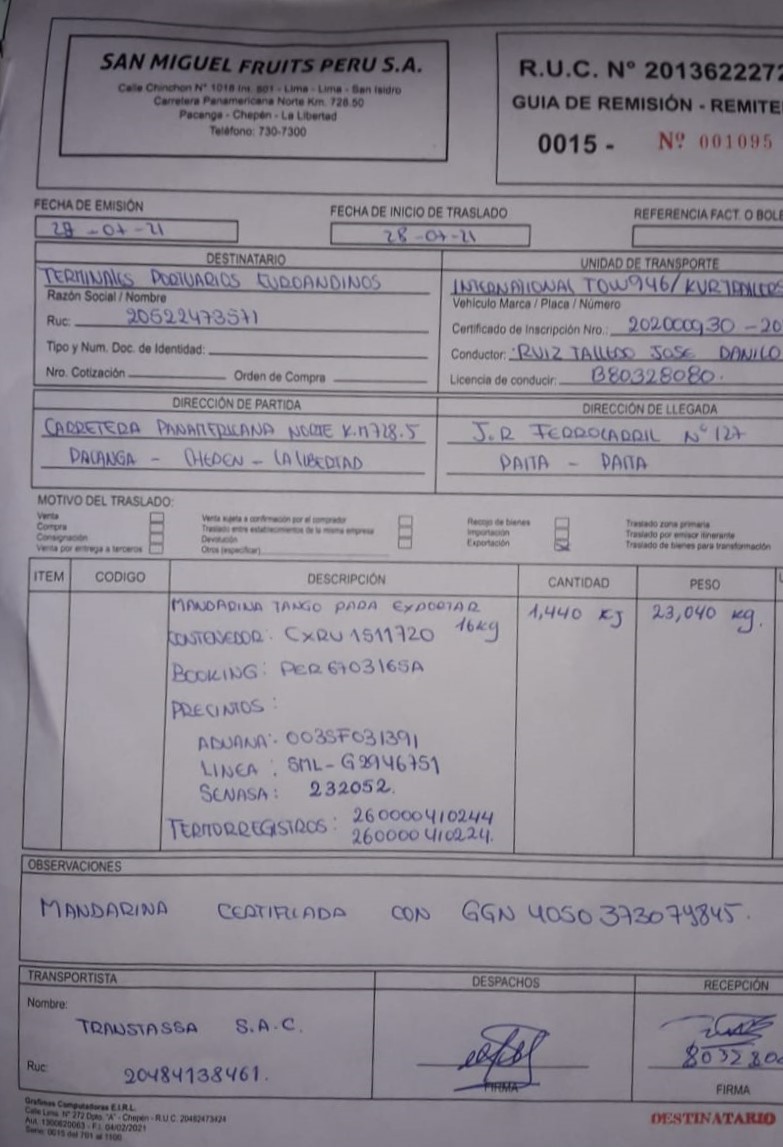 SAN MIGUEL FRUITS PERU S.A.
Calle Chinchon N° 1018 Int. 501 - Lima - Lima - San Isidro
Carretera Panamericana Norte Km. 728.50
Pacanga - Chepén - La Libertad
Teléfono: 730-7300
R.U.C. N° 2013622272
GUIA DE REMISIÓN - REMITE
0015 - Nº 001095
FECHA DE EMISIÓN
28-07-21
FECHA DE INICIO DE TRASLADO
28-07-21
REFERENCIA FACT. O BOLE
DESTINATARIO
TERMINALES PORTUARIOS EUROANDINOS
Razón Social / Nombre
Ruc: 20522473571
Tipo y Num. Doc. de Identidad:
Nro. Cotización Orden de Compra
UNIDAD DE TRANSPORTE
INTERNATIONAL TOW946/ KURTRAILERS
Vehículo Marca / Placa / Número
Certificado de Inscripción Nro.: 202000930 - 20
Conductor: RUIZ TALLEDO JOSE DANILO
Licencia de conducir: B80328080.
DIRECCIÓN DE PARTIDA
CARRETERA PANAMERICANA NORTE K.M728.5
PACANGA - CHEPEN - LA LIBERTAD
DIRECCIÓN DE LLEGADA
J.R FERROCARRIL N° 127
PAITA - PAITA
MOTIVO DEL TRASLADO:
Venta
Compra
Consignación
Venta por entrega a terceros
Venta sujeta a confirmación por el comprador
Traslado entre establecimientos de la misma empresa
Devolución
Otros (especificar)
Recojo de bienes
Importación
Exportación
Traslado zona primaria
Traslado por emisor itinerante
Traslado de bienes para transformación
ITEM CODIGO DESCRIPCIÓN CANTIDAD PESO
MANDARINA TANGO PARA EXPORTAR 1,440 KJ 23,040 kg.
CONTENEDOR: CXRU 1511720 16kg
BOOKING: PER6703165A
PRECINTOS:
ADUANA: 003SF031391
LINEA: SML-G2946751
SENASA: 232052.
TERMORREGISTROS: 260000410244
260000410224.
OBSERVACIONES
MANDARINA CERTIFICADA CON GGN 4050373079845.
TRANSPORTISTA
Nombre:
TRANSTASSA S.A.C.
Ruc: 20484138461.
DESPACHOS
FIRMA
RECEPCIÓN
803280
FIRMA
Graficas Computadoras E.I.R.L.
Calle Lima N° 272 Dpto. "A" - Chepén - R.U.C. 20482473424
Aut. 1300620063 - F.I. 04/02/2021
Serie: 0015 del 701 al 1100
DESTINATARIO